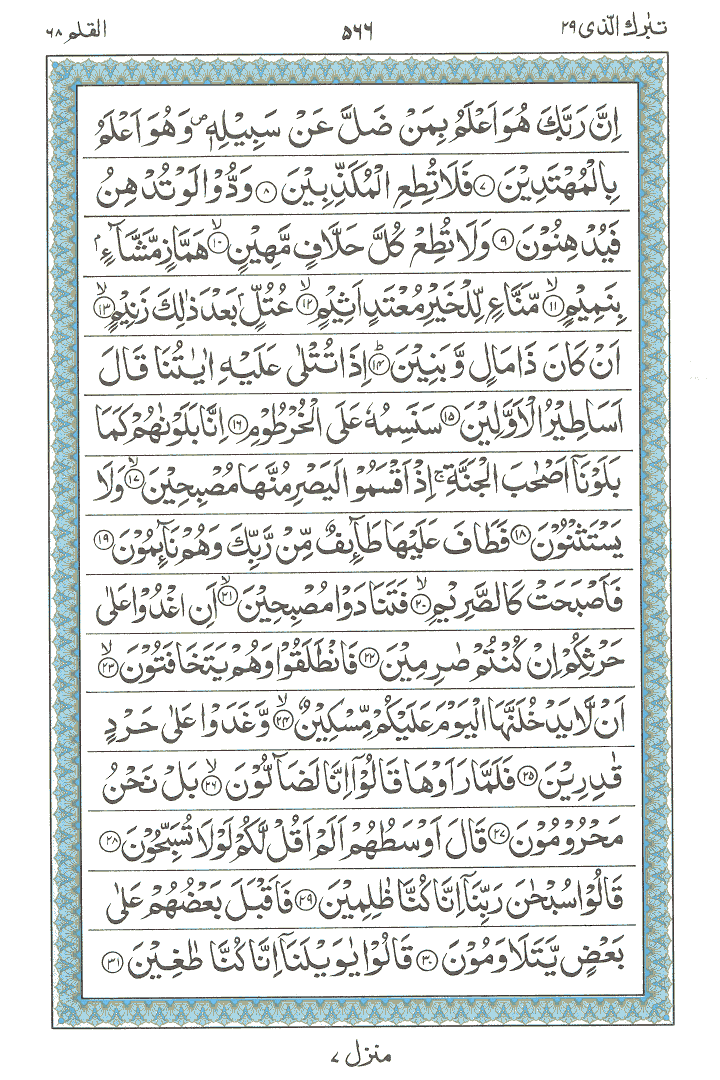 تبٰرك الّذی ٢٩
٥٦٦
القلم ٦٨
اِنَّ رَبَّكَ هُوَ اَعْلَمُ بِمَنْ ضَلَّ عَنْ سَبِيْلِهٖ ۪ وَهُوَ اَعْلَمُ
بِالْمُهْتَدِيْنَ ﴿٧﴾ فَلَا تُطِعِ الْمُكَذِّبِيْنَ ﴿٨﴾ وَدُّوْا لَوْ تُدْهِنُ
فَيُدْهِنُوْنَ ﴿٩﴾ وَلَا تُطِعْ كُلَّ حَلَّافٍ مَّهِيْنٍ ﴿١٠﴾ۙ هَمَّازٍ مَّشَّآءٍۭ
بِنَمِيْمٍ ﴿١١﴾ۙ مَّنَّاعٍ لِّلْخَيْرِ مُعْتَدٍ اَثِيْمٍ ﴿١٢﴾ۙ عُتُلٍّۭ بَعْدَ ذٰلِكَ زَنِيْمٍ ﴿١٣﴾ۙ
اَنْ كَانَ ذَا مَالٍ وَّبَنِيْنَ ﴿١٤﴾ؕ اِذَا تُتْلٰى عَلَيْهِ اٰيٰتُنَا قَالَ
اَسَاطِيْرُ الْاَوَّلِيْنَ ﴿١٥﴾ سَنَسِمُهٗ عَلَى الْخُرْطُوْمِ ﴿١٦﴾ اِنَّا بَلَوْنٰهُمْ كَمَا
بَلَوْنَاۤ اَصْحٰبَ الْجَنَّةِ ۚ اِذْ اَقْسَمُوْا لَيَصْرِمُنَّهَا مُصْبِحِيْنَ ﴿١٧﴾ۙ وَلَا
يَسْتَثْنُوْنَ ﴿١٨﴾ فَطَافَ عَلَيْهَا طَآئِفٌ مِّنْ رَّبِّكَ وَهُمْ نَآئِمُوْنَ ﴿١٩﴾
فَاَصْبَحَتْ كَالصَّرِيْمِ ﴿٢٠﴾ۙ فَتَنَادَوْا مُصْبِحِيْنَ ﴿٢١﴾ۙ اَنِ اغْدُوْا عَلٰى
حَرْثِكُمْ اِنْ كُنْتُمْ صٰرِمِيْنَ ﴿٢٢﴾ فَانْطَلَقُوْا وَهُمْ يَتَخَافَتُوْنَ ﴿٢٣﴾ۙ
اَنْ لَّا يَدْخُلَنَّهَا الْيَوْمَ عَلَيْكُمْ مِّسْكِيْنٌ ﴿٢٤﴾ۙ وَّغَدَوْا عَلٰى حَرْدٍ
قٰدِرِيْنَ ﴿٢٥﴾ فَلَمَّا رَاَوْهَا قَالُوْۤا اِنَّا لَضَآلُّوْنَ ﴿٢٦﴾ۙ بَلْ نَحْنُ
مَحْرُوْمُوْنَ ﴿٢٧﴾ قَالَ اَوْسَطُهُمْ اَلَمْ اَقُلْ لَّكُمْ لَوْلَا تُسَبِّحُوْنَ ﴿٢٨﴾
قَالُوْا سُبْحٰنَ رَبِّنَاۤ اِنَّا كُنَّا ظٰلِمِيْنَ ﴿٢٩﴾ فَاَقْبَلَ بَعْضُهُمْ عَلٰى
بَعْضٍ يَّتَلَاوَمُوْنَ ﴿٣٠﴾ قَالُوْا يٰوَيْلَنَاۤ اِنَّا كُنَّا طٰغِيْنَ ﴿٣١﴾
منزل ٧